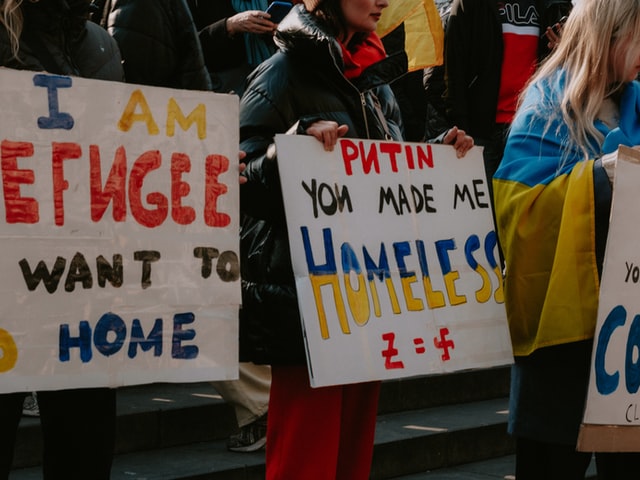 I AM
EFUGEE
WANT TO
O HOME
PUTIN
YOU MADE ME
HOMELESS
Z = 卐
FILA
YO
CO
CL